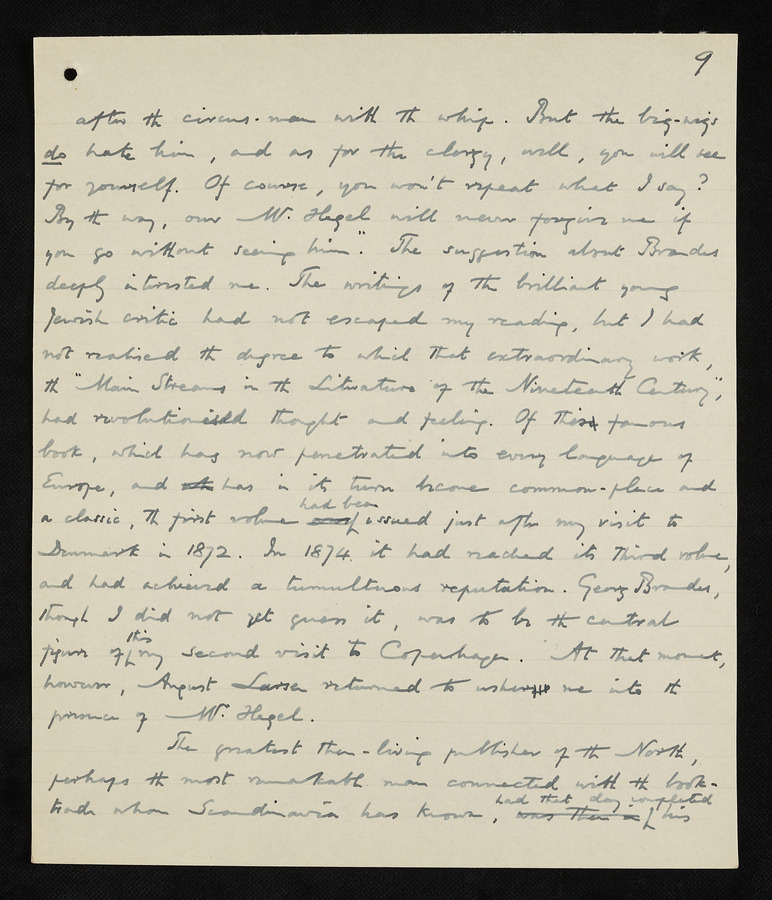 9
after th circus-man with th whip. But the big-wigs
do hate him, and as for the clergy, well, you will see
for yourself. Of course, you won't repeat what I say?
By th way, our Mr. Hegel will never forgive me if
you go without seeing him". The suggestion about Brandes
deeply interested me. The writings of th brilliant young
Jewish critic had not escaped my reading, but I had
not realised th degree to which that extraordinary work,
th "Main Streams in th Literature of the Nineteenth Century",
had revolutionised thought and feeling. Of this famous
book, which has now penetrated into every language of
Europe, and has in its turn become common-place and
had been
a classic, th first volume issued just after my visit to
Denmark in 1872. In 1874 it had reached its third volume,
and had achieved a tumultuous reputation. Georg Brandes,
though I did not yet guess it, was to be th central
this
figure of my second visit to Copenhagen. At that moment,
however, August Larsen returned to usher me into th
presence of Mr. Hegel.
The greatest then-living publisher of th North,
perhaps th most remarkable man connected with th book-
had that day completed
trade whom Scandinavia has known, was then in his